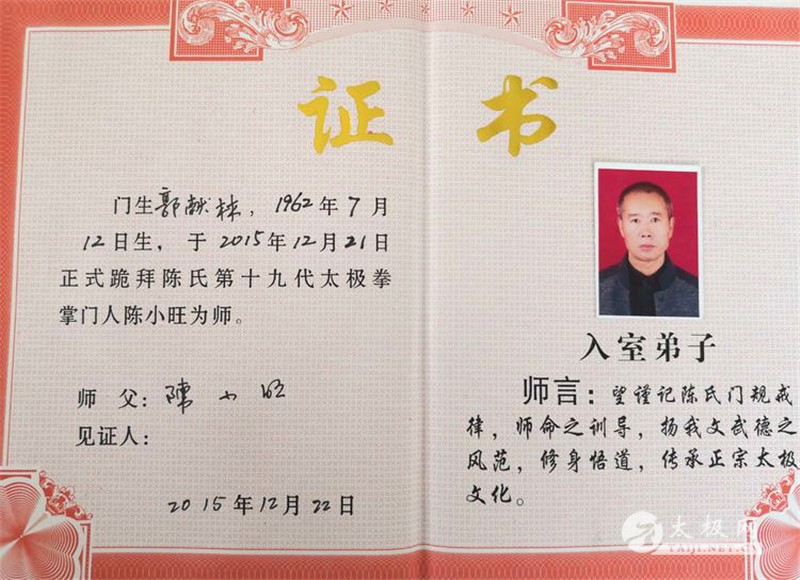 证书
门生郭献林，1962年7月
12日生，于2015年12月21日
正式跪拜陈氏第十九代太极拳
掌门人陈小旺为师。
师父：陳小旺
见证人：
2015年12月22日
入室弟子
师言：望谨记陈氏门规戒
律，师命之训导，扬我文武德之
风范，修身悟道，传承正宗太极
文化。
太极网
TAIJI.NET.CN